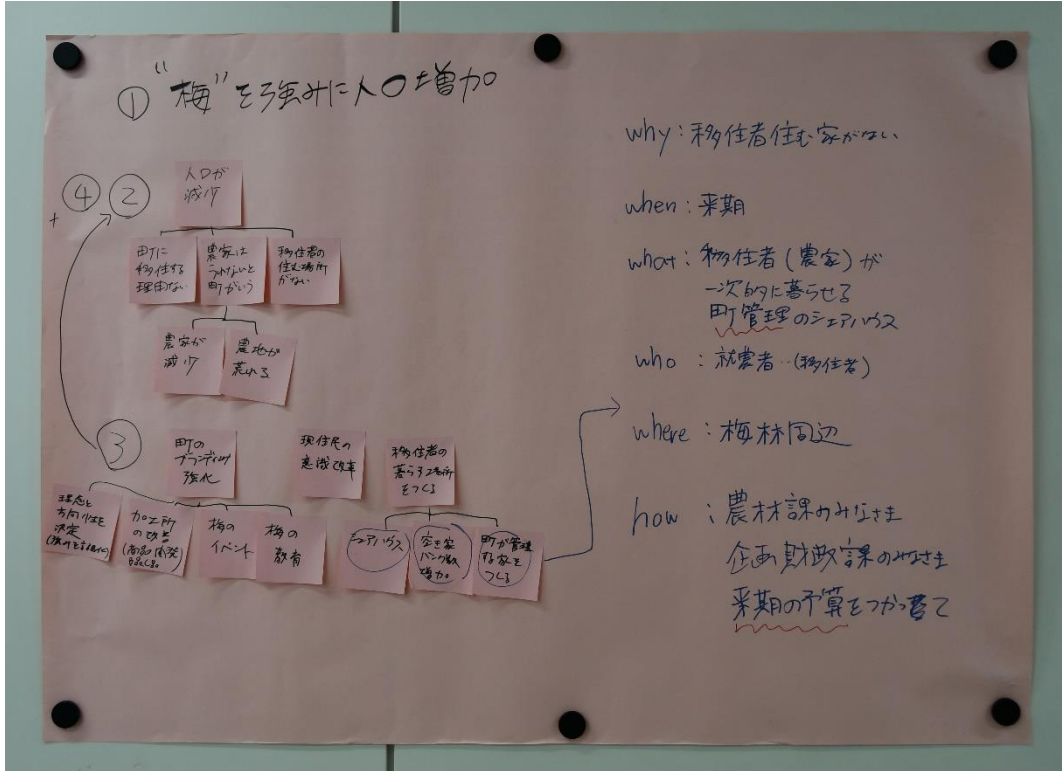 ① "梅"を強みに人口増加
④ ②
+
人口が
減少
町に
移住する
理由ない
農家は
うれないと
町がいう
移住者の
住む場所
がない
農家が
減少
農地が
荒れる
③
町の
ブランディング
強化
現住民の
意識改革
移住者の
暮らす場所
をつくる
理念と
方向性を
決定
加工所
の改善
(商品開発)
梅の
イベント
梅の
教育
シェアハウス
空き家
バンク数
増加
町が管理
する家を
つくる
why:移住者住む家がない
when:来期
what:移住者(農家)が
一次的に暮らせる
町管理のシェアハウス
who:就農者‥(移住者)
where:梅林周辺
how:農林課のみなさま
企画財政課のみなさま
来期の予算をつかって